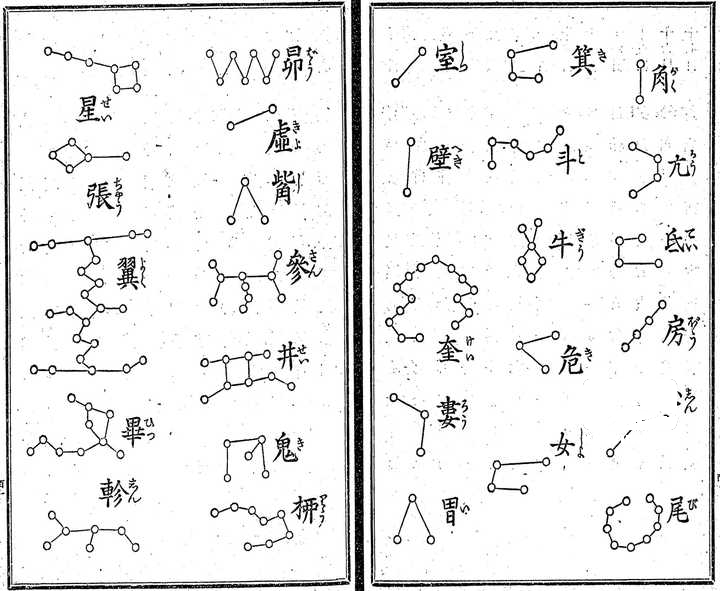 角 かく
亢 かう
氐 てい
房 ばう
しん
尾 び
箕 き
斗 と
牛 ぎう
危 き
女 じよ
室 しつ
壁 へき
奎 けい
婁 ろう
胃 い
昴 ばう
虛 きよ
觜 し
參 さん
井 せい
鬼 き
柳 りう
星 せい
張 ちやう
翼 よく
畢 ひつ
軫 しん